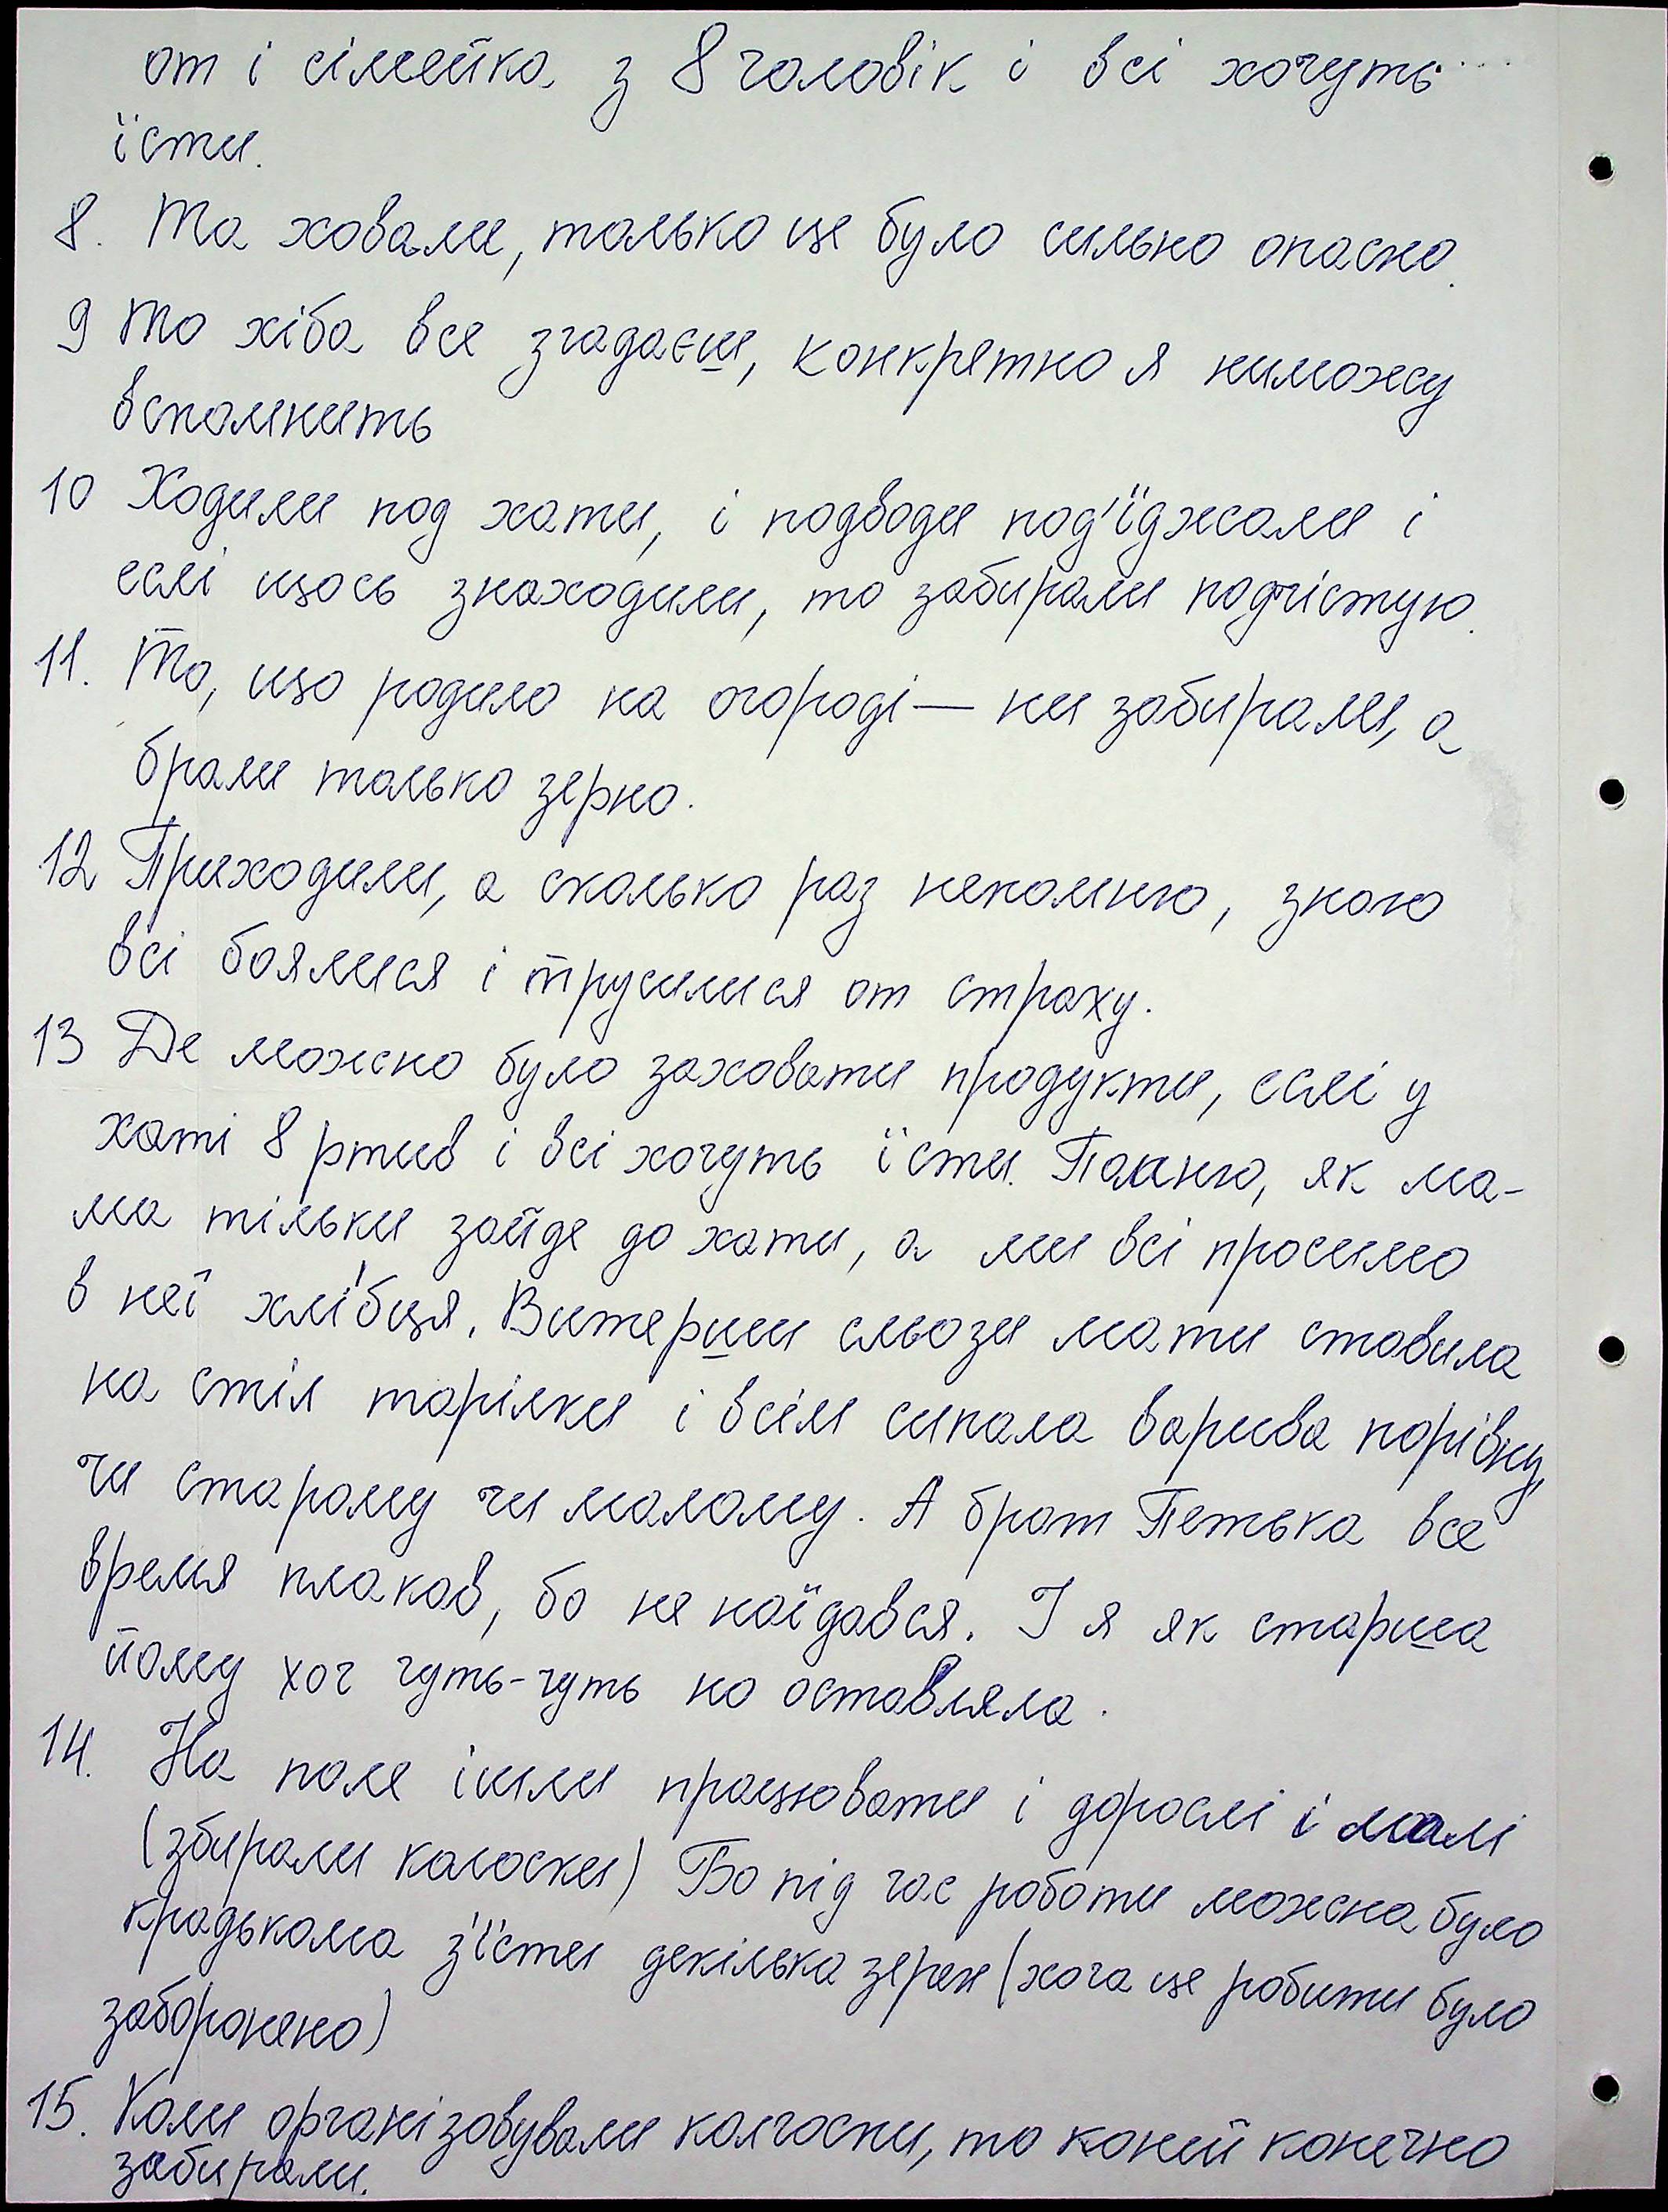 от і сімейка з 8 чоловік і всі хочуть
їсти.
8. Та ховали, только це було сильно опасно.
9 То хіба все згадаєш, конкретно яниможу
вспомнить
10 Ходили под хати, і подводи под'їджали і
еслі щось знаходили, то забирали подчістую.
11. То, що родило на огороді — ни забирали, а
брали только зерно.
12 Приходили, а сколько раз непомню, знаю
всі боялися і трусилися от страху.
13 Де можно було заховати продукти, еслі у
хаті 8 ртив і всі хочуть їсти. Помню, як ма-
ма тільки зайде до хати, а ми всі просимо
в неї хлібця. Витерши сльози мати ставила
на стіл тарілки і всім сипала варива порівну,
чи старому чи малому. А брат Петька все
время плакав, бо не наїдався. І я як старша
йому хоч чуть-чуть но оставляла.
14. На поле ішли працювати і дорослі і малі
(збирали колоски) Бо під час роботи можна було
крадькома з'їсти декілька зерен (хоча це робити було
заборонено)
15. Коли організовували колгоспи, то коней конечно
забирали.